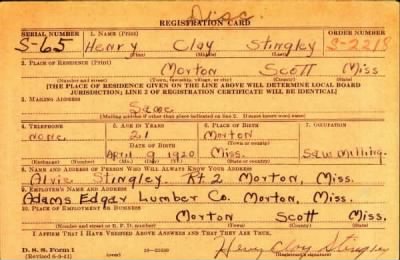 Disc.
REGISTRATION CARD
SERIAL NUMBER 1. NAME (Print) ORDER NUMBER
S-65 Henry Clay Stingley S-2218
(First) (Middle) (Last)
2. PLACE OF RESIDENCE (Print)
Morton Scott Miss
(Number and street) (Town, township, village, or city) (County) (State)
[THE PLACE OF RESIDENCE GIVEN ON THE LINE ABOVE WILL DETERMINE LOCAL BOARD
JURISDICTION; LINE 2 OF REGISTRATION CERTIFICATE WILL BE IDENTICAL]
3. MAILING ADDRESS
Same
[Mailing address if other than place indicated on line 2. If same insert word same]
4. TELEPHONE 5. AGE IN YEARS 6. PLACE OF BIRTH 7. OCCUPATION
none 21 Morton
DATE OF BIRTH (Town or county)
April 9 1920 Miss. Saw Milling.
(Exchange) (Number) (Mo.) (Day) (Yr.) (State or country)
8. NAME AND ADDRESS OF PERSON WHO WILL ALWAYS KNOW YOUR ADDRESS
Alvie Stingley Rt 2 Morton, Miss.
9. EMPLOYER'S NAME AND ADDRESS
Adams Edgar Lumber Co. Morton, Miss.
10. PLACE OF EMPLOYMENT OR BUSINESS
Morton Scott Miss.
(Number and street or R. F. D. number) (Town) (County) (State)
I AFFIRM THAT I HAVE VERIFIED ABOVE ANSWERS AND THAT THEY ARE TRUE.
D. S. S. Form 1 Henry Clay Stingley
(Revised 6-9-41) (Registrant's signature)